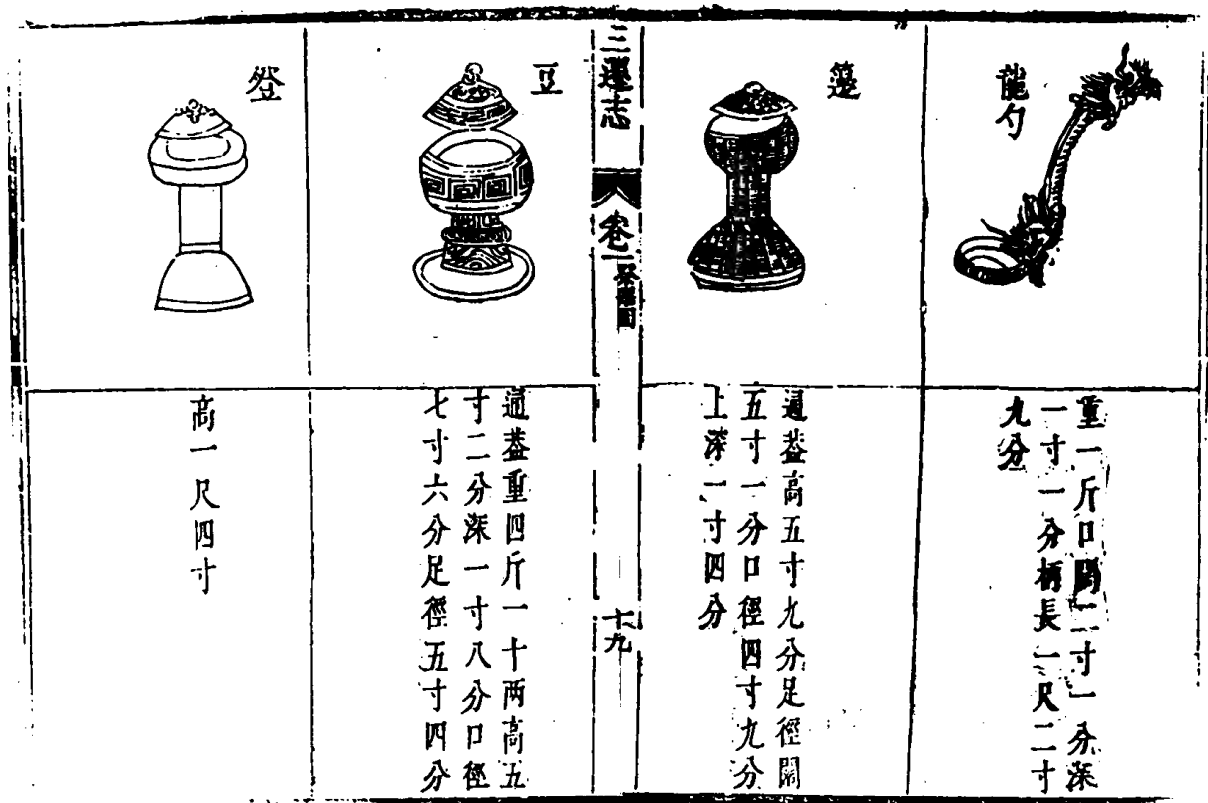 龍勺
重一斤口闊二寸一分深
一寸一分柄長一尺二寸
九分
籩
通葢高五寸九分足徑闊
五寸一分口徑四寸九分
上深一寸四分
三遷志
卷一
祭器圖
十九
豆
通葢重四斤一十两高五
寸二分深一寸八分口徑
七寸六分足徑五寸四分
登
高一尺四寸